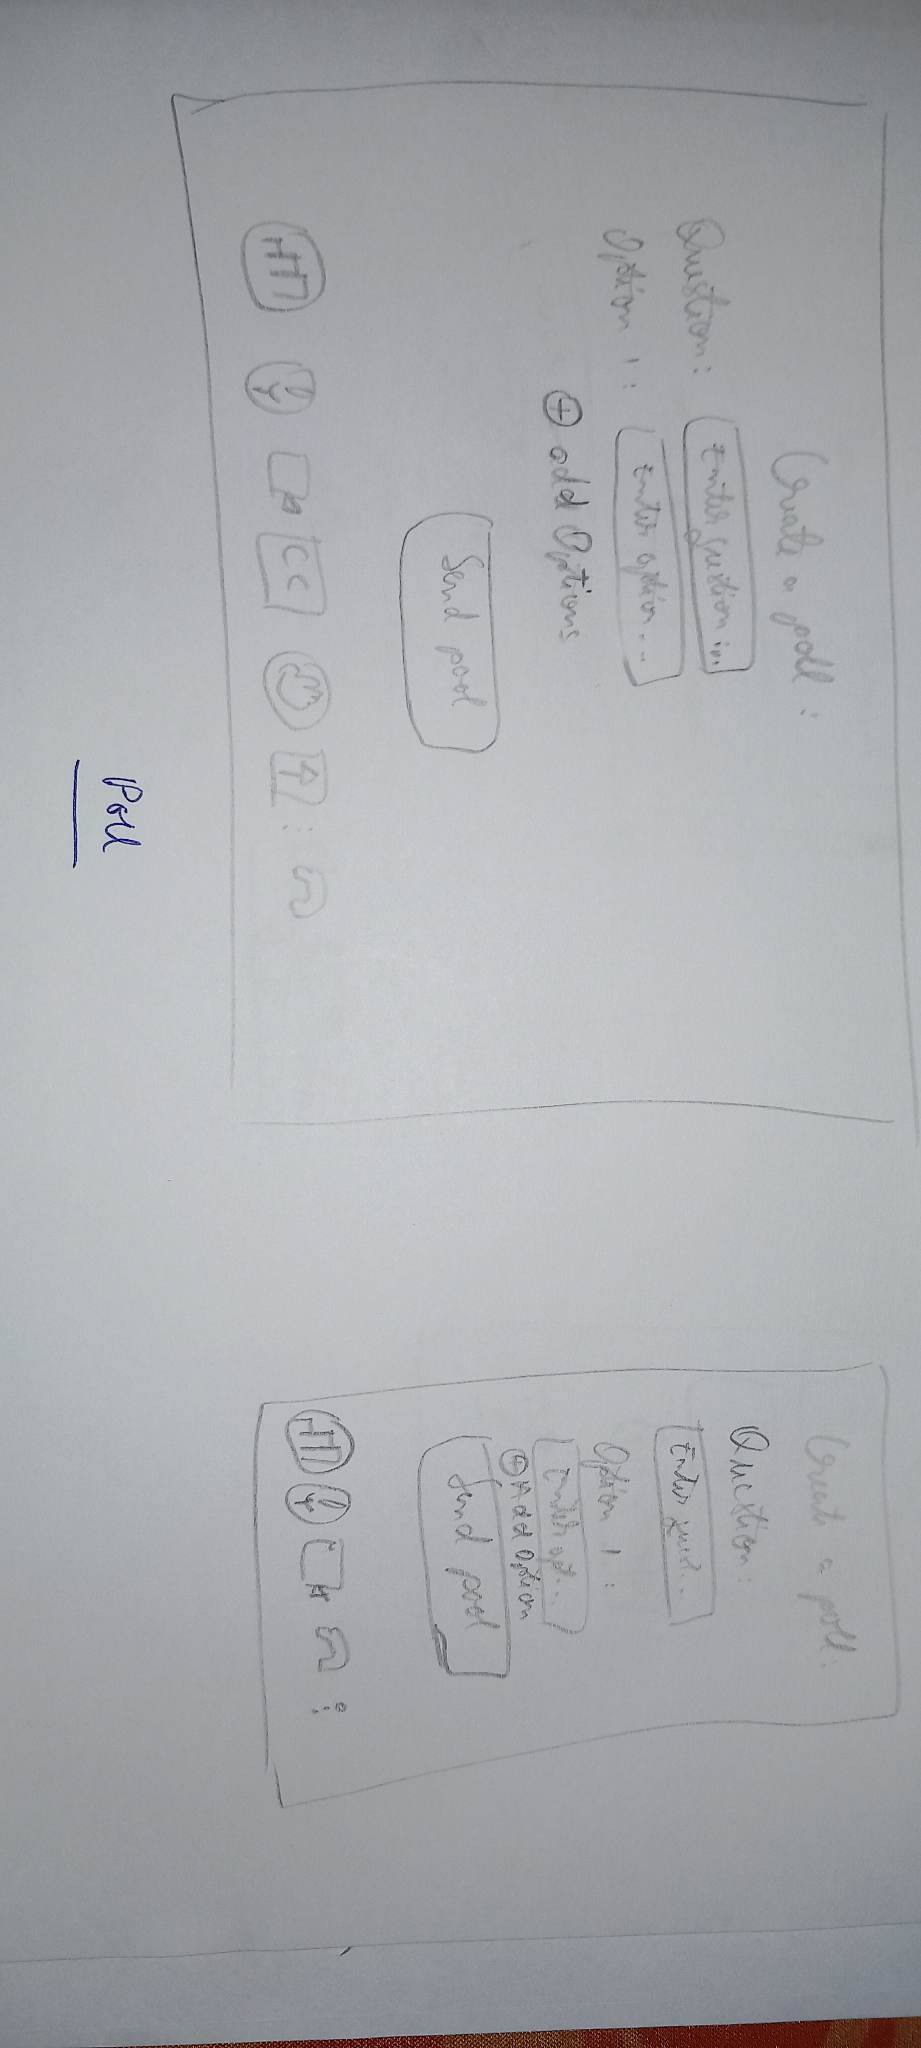 Create a poll :
Question: Enter question ...
Option 1 : Enter option ...
+ add Options
Send pool
CC
Create a poll:
Question:
Enter quest...
Option 1 :
Enter opt...
+ Add Option
Send pool
Poll